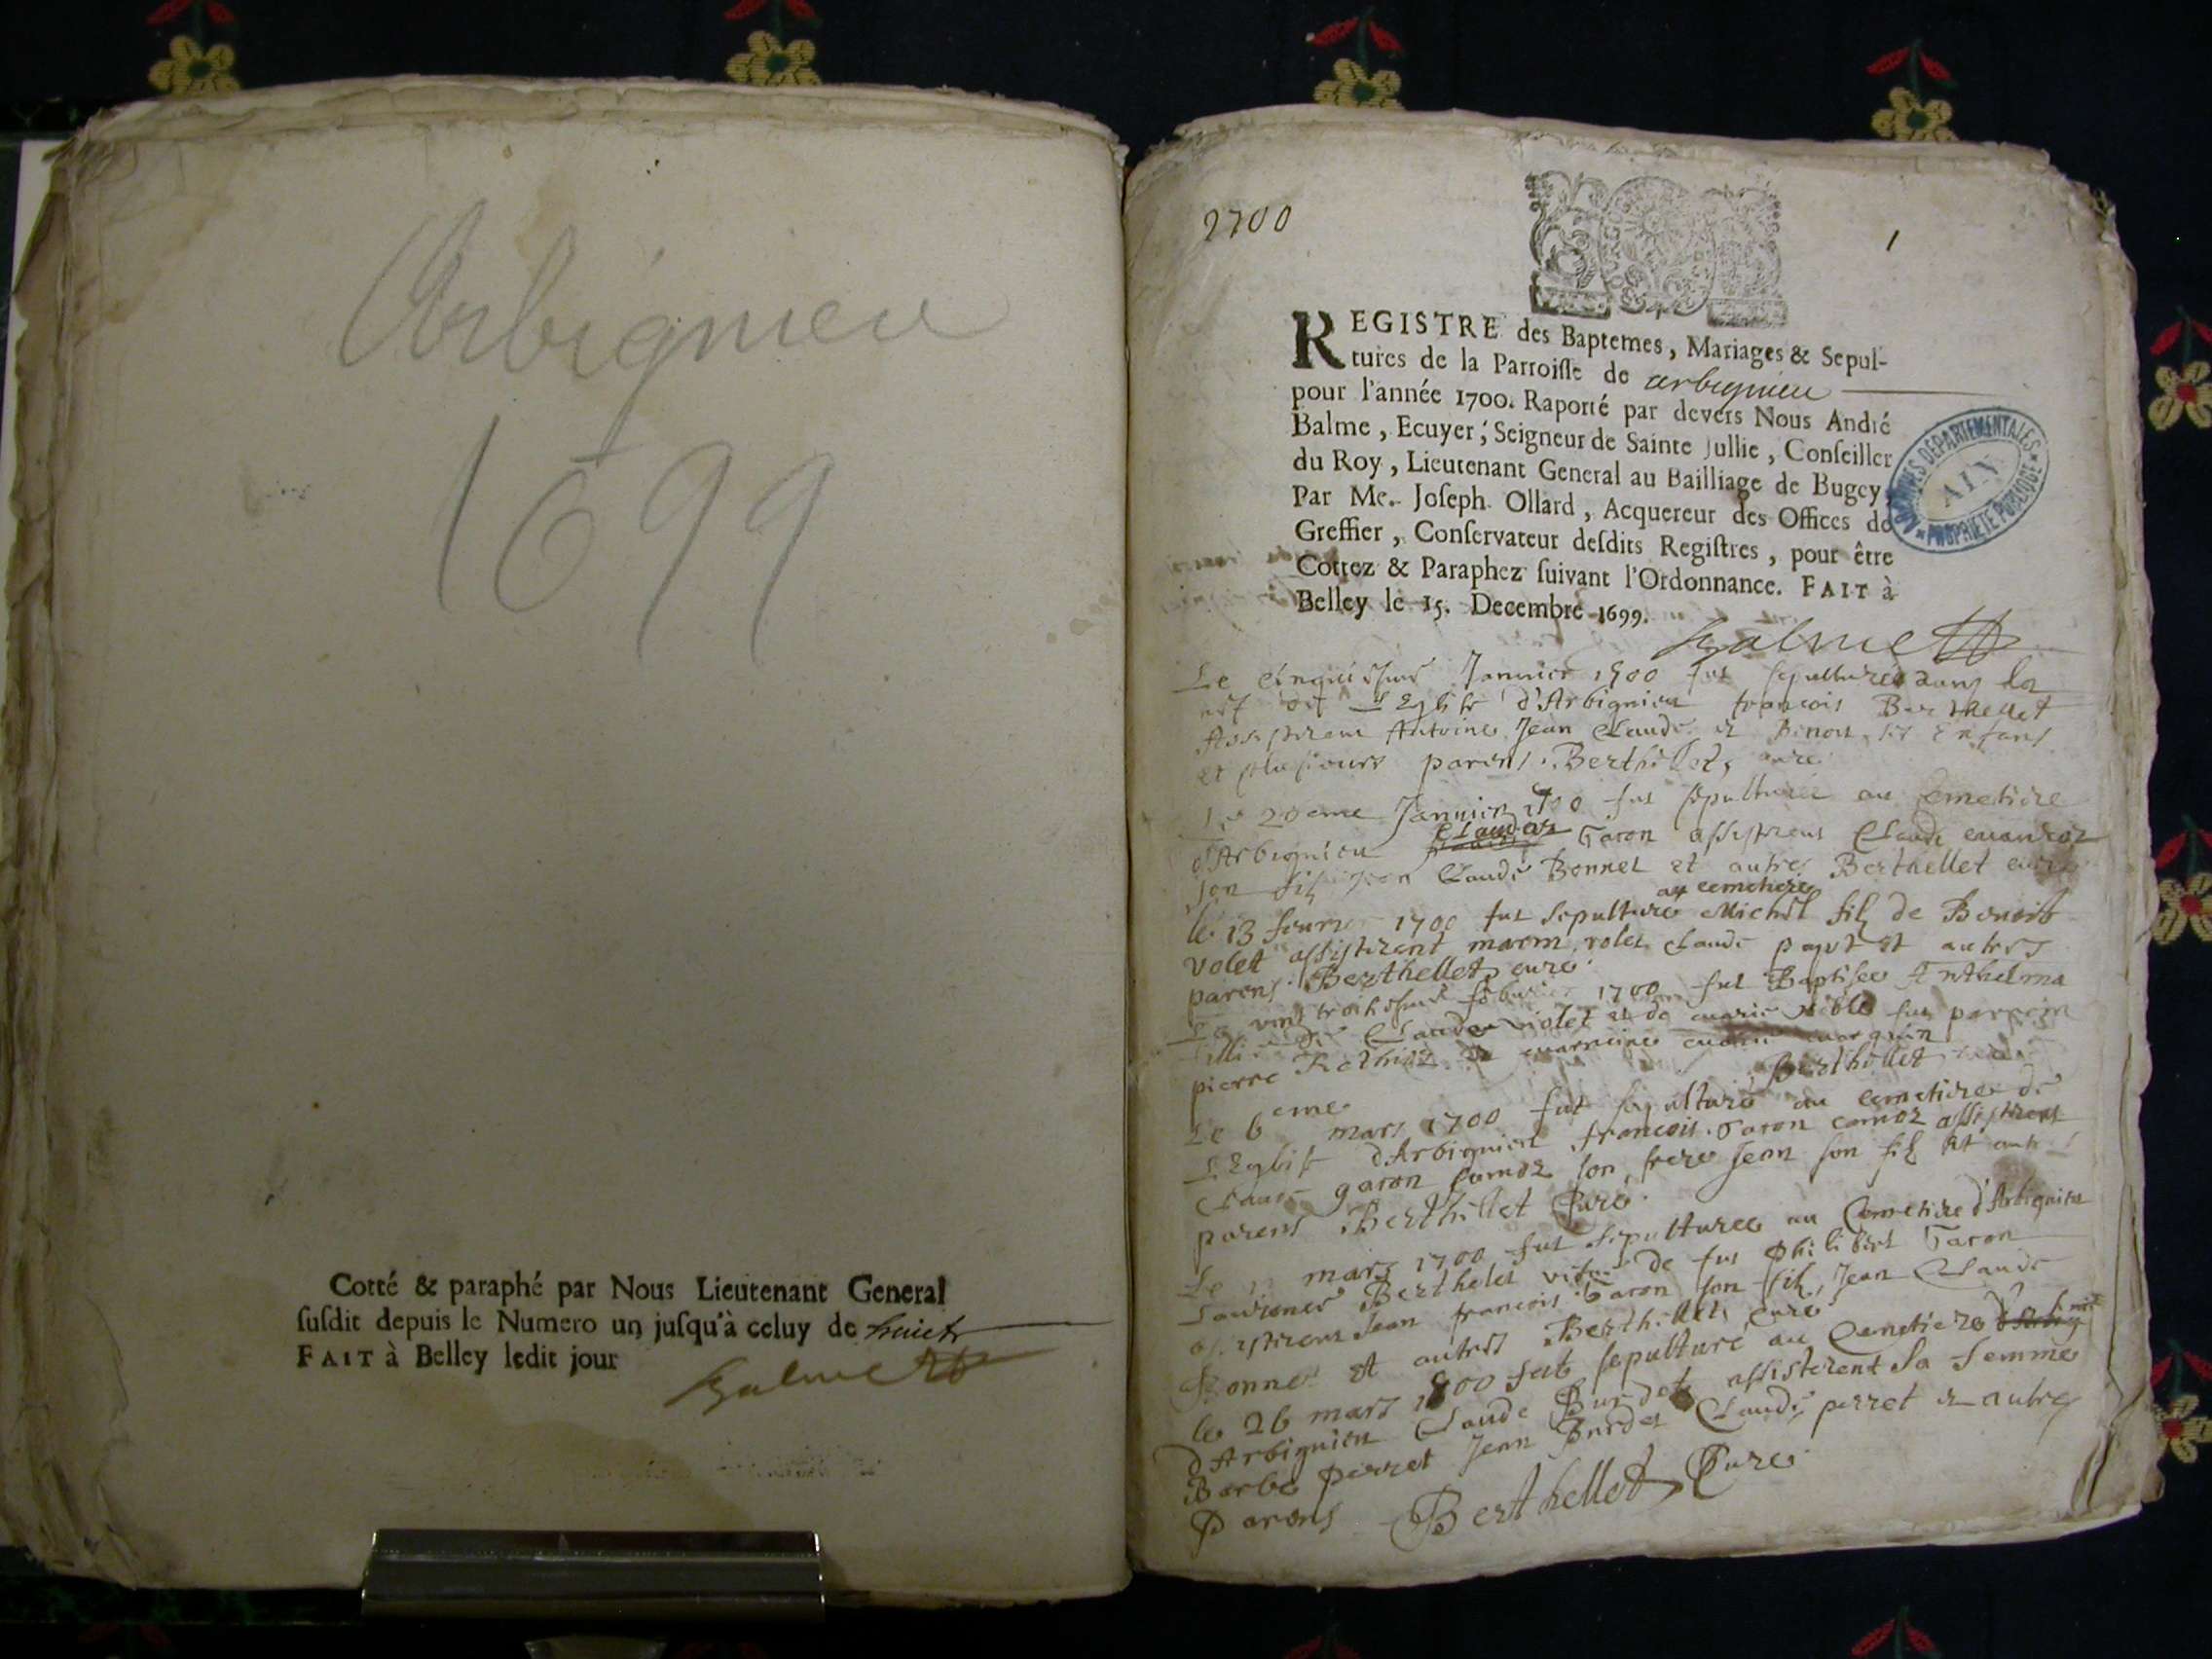 Arbignieu
1699
Cotté & paraphé par Nous Lieutenant General
suſdit depuis le Numero un juſqu'à celuy de huict
FAIT à Belley ledit jour
Balme
1700
1
REGISTRE des Baptemes, Mariages & Sepul-
tures de la Parroiſſe de arbignieu
pour l'année 1700. Raporté par devers Nous André
Balme, Ecuyer, Seigneur de Sainte Jullie, Conſeiller
du Roy, Lieutenant General au Bailliage de Bugey,
Par Me. Joſeph Ollard, Acquereur des Offices de
Greffier, Conſervateur deſdits Regiſtres, pour être
Cottez & Paraphez ſuivant l'Ordonnance. FAIT à
Belley le 15. Decembre 1699.
ARCHIVES DEPARTEMENTALES
AIN
PROPRIETE PUBLIQUE
Balme
Le Janvier 1700 fut sepulturé dans la
L'Eglise d'Arbignieu francois Berthellet
Antoine Jean Claude et Benoit ses enfans
et plusieurs parens. Berthellet, curé
Le 20eme Janvier 1700 fut sepulturée au Cemetiere
d'Arbignieu Claudaz Garon assistrent Claude
son fils Jean Claude Bonnet et autres Berthellet curé
au cemetiere
le 13 1700 fut sepulturé Michel fils de Benoit
volet assistirent volet Claude et autres
parens. Berthellet, curé
Le vint trois 1700 fut Baptisée Anthelma
fillie de Claude violet et de marie fut parrein
pierre et marreine
Berthellet
Le 6eme mars 1700 fut sepulturé au cemetiere de
L'Eglise d'Arbignieu francois Garon camoz assistrent
Claude garon camoz son frere Jean son fils et autres
parens Berthellet Curé
Le mars 1700 fut sepulturée au Cemetiere d'Arbignieu
Berthelet de fut philibert Garon
assistrent Jean francois Garon son fils, Jean Claude
Bonnet et autres Berthellet, curé
le 26 mars 1700 fut sepulturé au Cemetiere
d'Arbignieu Claude Burdet assisterent sa femme
Barbe perret Jean Burdet Claude perret et autres
Parens Berthellet, Curé